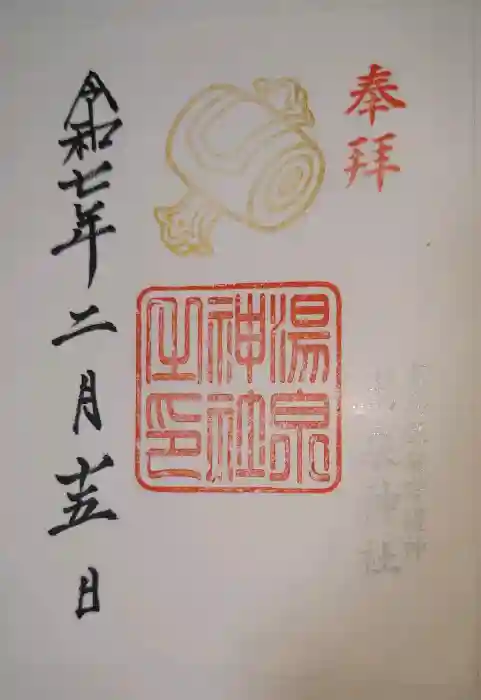 奉拝
湯泉
神社
之印
令和七年二月十五日